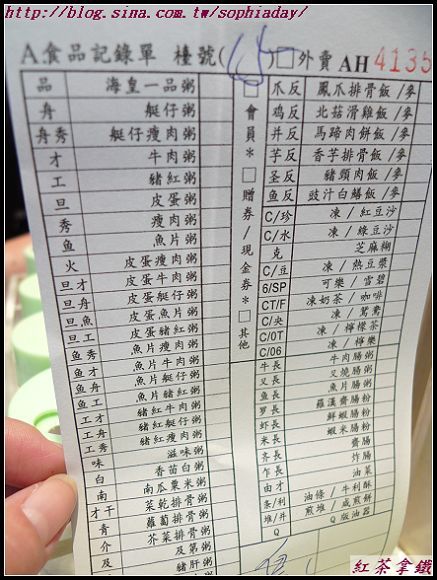 http://blog.sina.com.tw/sophiaday/
A.食品記錄單 檯號( )□外賣 AH 4135
品 海皇一品粥
舟 艇仔粥
舟秀 艇仔瘦肉粥
才 牛肉粥
工 豬紅粥
旦 皮蛋粥
秀 瘦肉粥
鱼 魚片粥
火 皮蛋瘦肉粥
旦才 皮蛋牛肉粥
旦舟 皮蛋艇仔粥
旦魚 皮蛋魚片粥
旦工 皮蛋豬紅粥
鱼秀 魚片瘦肉粥
鱼才 魚片牛肉粥
鱼舟 魚片艇仔粥
鱼工 魚片豬紅粥
工才 豬紅牛肉粥
工舟 豬紅艇仔粥
工秀 豬紅瘦肉粥
味 滋味粥
白 香苗白粥
南 南瓜粟米粥
才干 菜乾排骨粥
青 蘿蔔排骨粥
介 芥菜排骨粥
及 及第粥
豬肝粥
□會員*□贈券/現金券*□其他
爪反 鳳爪排骨飯/麥
鸡反 北菇滑雞飯/麥
并反 馬蹄肉餅飯/麥
芋反 香芋排骨飯/麥
圣反 豬頸肉飯/麥
鱼反 豉汁白鱔飯/麥
C/珍 凍/紅豆沙
C/水 凍/綠豆沙
克 芝麻糊
C/豆 凍/熱豆漿
6/SP 可樂/雪碧
CT/F 凍奶茶/咖啡
C/央 凍/鴛鴦
C/0T 凍/檸檬茶
C/06 凍/檸樂
牛長 牛肉腸粥
叉長 叉燒腸粥
鱼長 魚片腸粥
罗長 羅漢齋腸粉
虾長 鮮蝦腸粉
米長 蝦米腸粉
齐長 齋腸
乍長 炸腸
由才 油菜
条/利 油條/牛利酥
堆/并 煎堆/咸煎餅
Q Q版油器
紅茶拿鐵